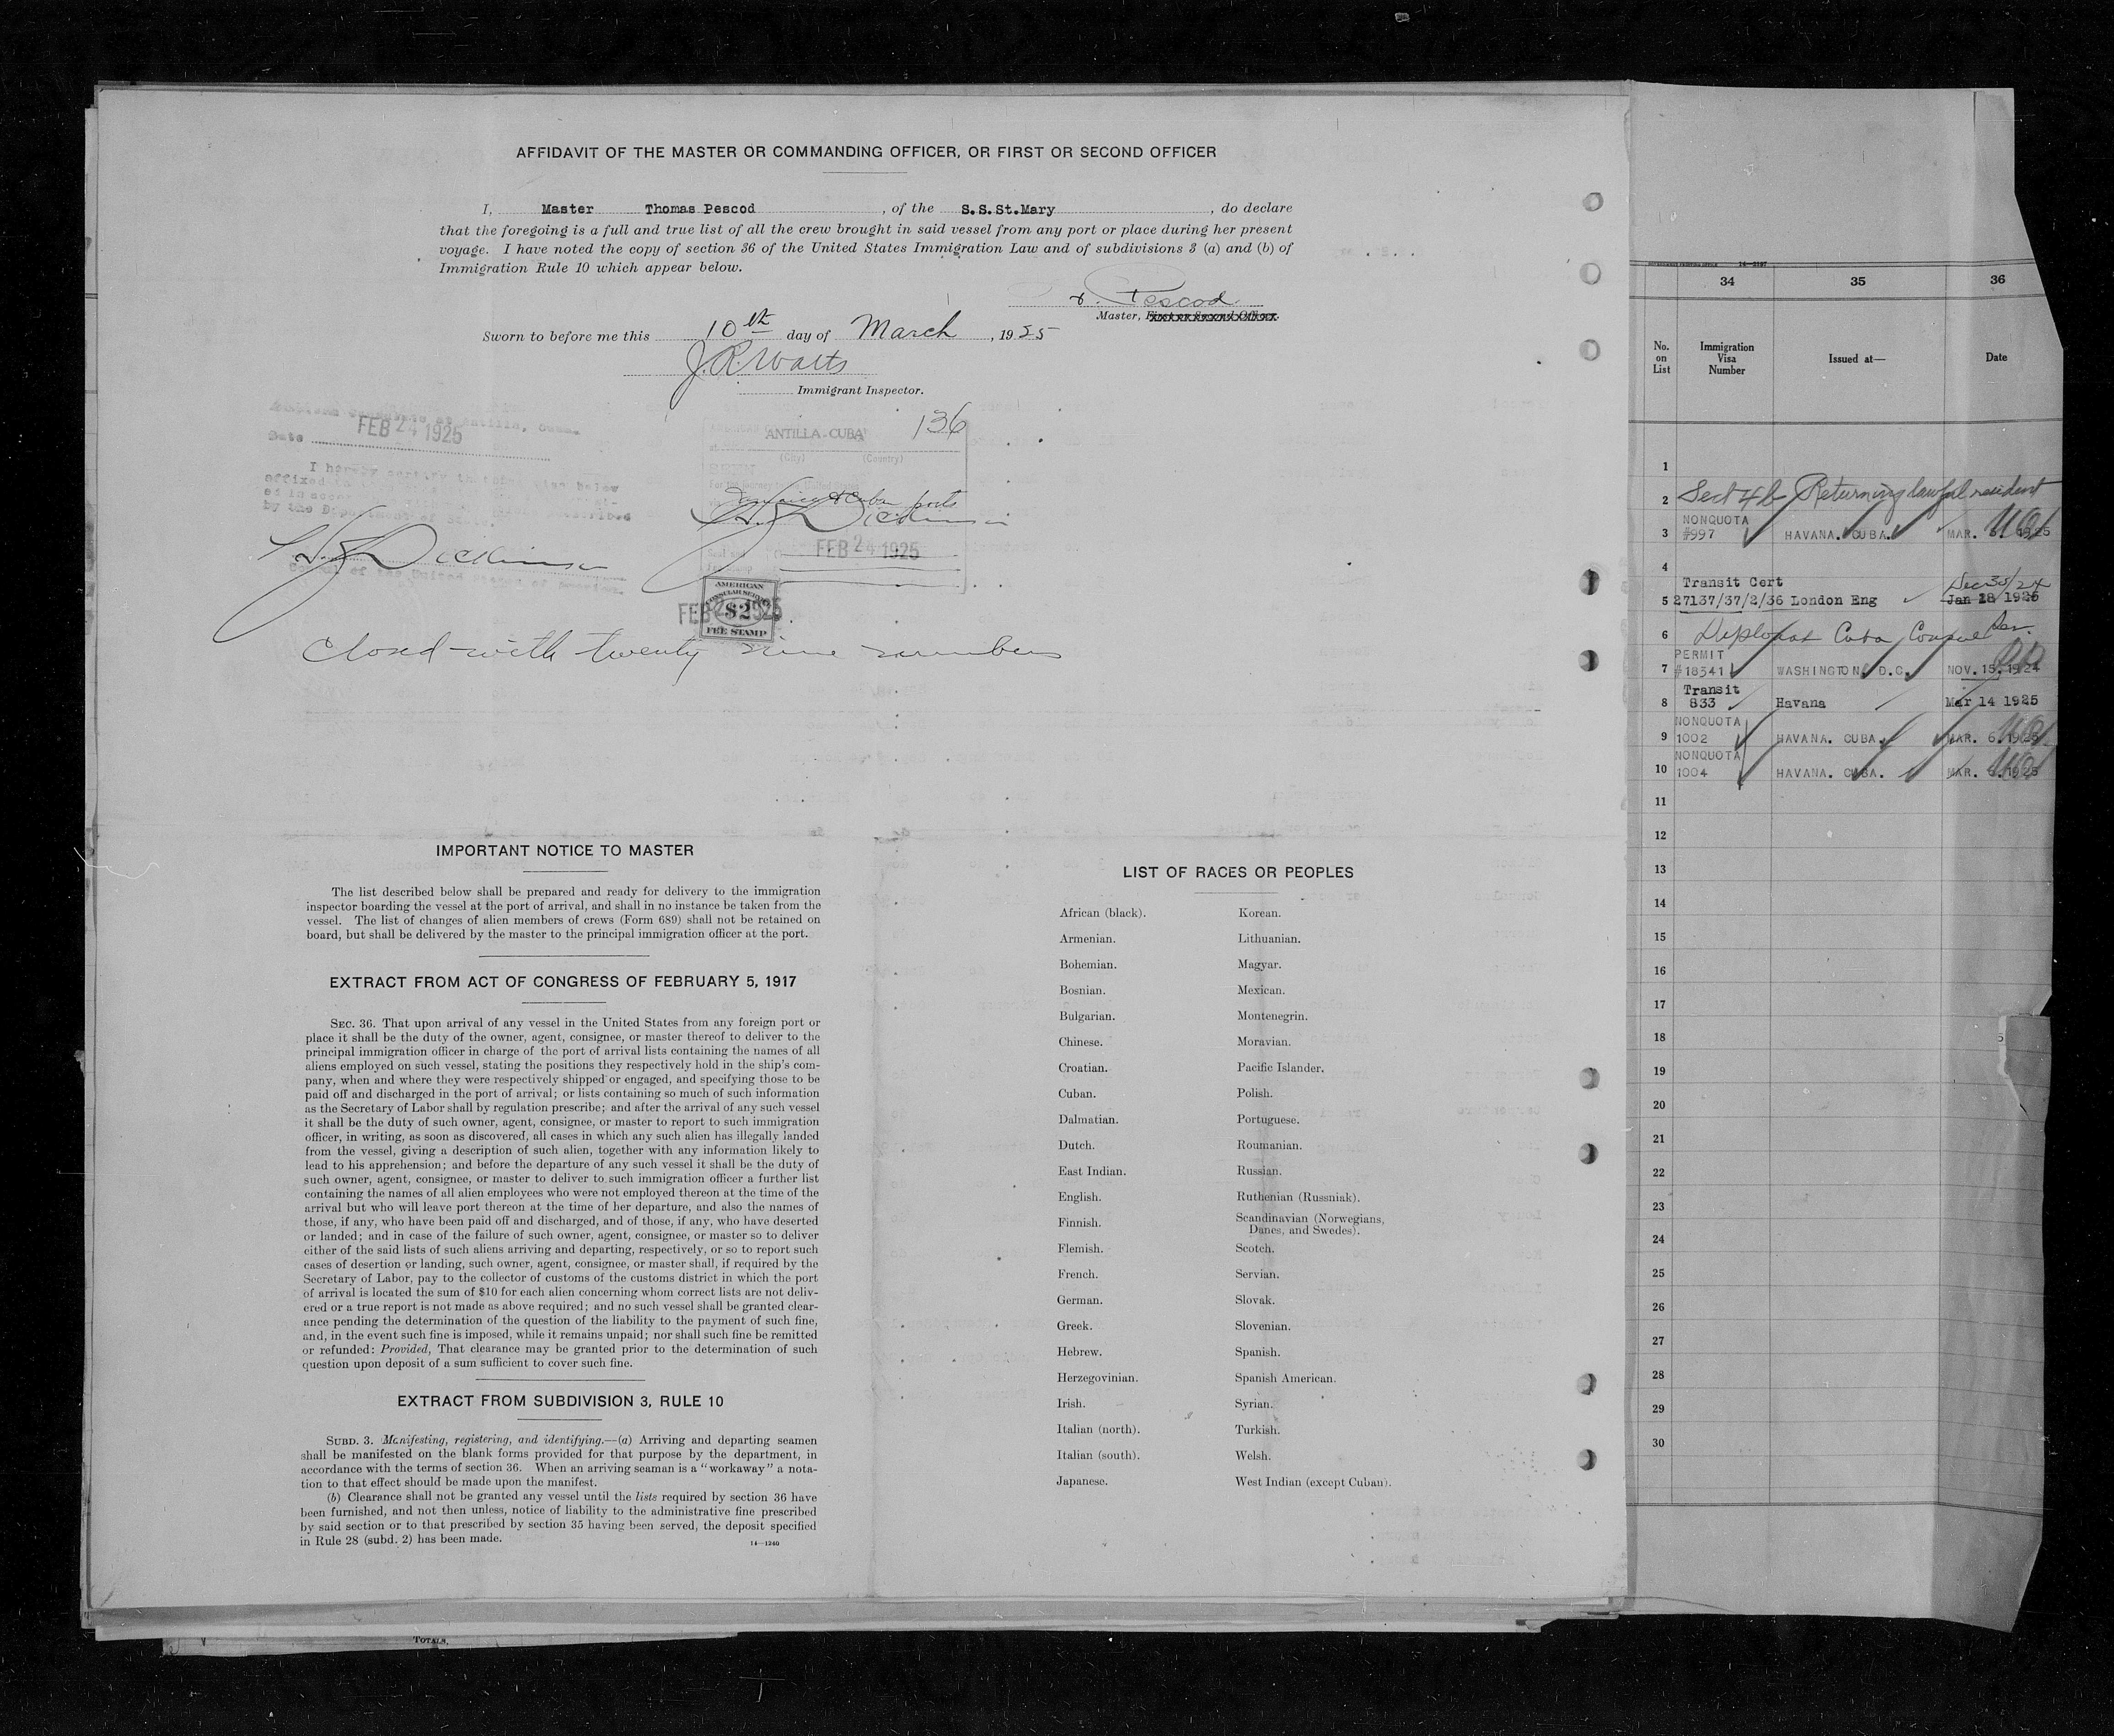 AFFIDAVIT OF THE MASTER OR COMMANDING OFFICER, OR FIRST OR SECOND OFFICER
I, Master Thomas Pescod, of the S.S.St.Mary, do declare
that the foregoing is a full and true list of all the crew brought in said vessel from any port or place during her present
voyage. I have noted the copy of section 36 of the United States Immigration Law and of subdivisions 3 (a) and (b) of
Immigration Rule 10 which appear below.
Pescod
Master,
Sworn to before me this 10th day of March, 1925
J.R. Watts
Immigrant Inspector.
Date FEB 24 1925
I hereby certify that the visa below
affixed
by the Department of State.
ANTILLA-CUBA 136
(City) (Country)
SEEN
For the journey to the United States
ports
FEB 24 1925
Dickinson
Dickinson
Consul of the United States of America.
AMERICAN
CONSULAR SERVICE
$2
FEE STAMP
Closed with twenty nine numbers
IMPORTANT NOTICE TO MASTER
The list described below shall be prepared and ready for delivery to the immigration
inspector boarding the vessel at the port of arrival, and shall in no instance be taken from the
vessel. The list of changes of alien members of crews (Form 689) shall not be retained on
board, but shall be delivered by the master to the principal immigration officer at the port.
EXTRACT FROM ACT OF CONGRESS OF FEBRUARY 5, 1917
SEC. 36. That upon arrival of any vessel in the United States from any foreign port or
place it shall be the duty of the owner, agent, consignee, or master thereof to deliver to the
principal immigration officer in charge of the port of arrival lists containing the names of all
aliens employed on such vessel, stating the positions they respectively hold in the ship's com-
pany, when and where they were respectively shipped or engaged, and specifying those to be
paid off and discharged in the port of arrival; or lists containing so much of such information
as the Secretary of Labor shall by regulation prescribe; and after the arrival of any such vessel
it shall be the duty of such owner, agent, consignee, or master to report to such immigration
officer, in writing, as soon as discovered, all cases in which any such alien has illegally landed
from the vessel, giving a description of such alien, together with any information likely to
lead to his apprehension; and before the departure of any such vessel it shall be the duty of
such owner, agent, consignee, or master to deliver to such immigration officer a further list
containing the names of all alien employees who were not employed thereon at the time of the
arrival but who will leave port thereon at the time of her departure, and also the names of
those, if any, who have been paid off and discharged, and of those, if any, who have deserted
or landed; and in case of the failure of such owner, agent, consignee, or master so to deliver
either of the said lists of such aliens arriving and departing, respectively, or so to report such
cases of desertion or landing, such owner, agent, consignee, or master shall, if required by the
Secretary of Labor, pay to the collector of customs of the customs district in which the port
of arrival is located the sum of $10 for each alien concerning whom correct lists are not deliv-
ered or a true report is not made as above required; and no such vessel shall be granted clear-
ance pending the determination of the question of the liability to the payment of such fine,
and, in the event such fine is imposed, while it remains unpaid; nor shall such fine be remitted
or refunded: Provided, That clearance may be granted prior to the determination of such
question upon deposit of a sum sufficient to cover such fine.
EXTRACT FROM SUBDIVISION 3, RULE 10
SUBD. 3. Manifesting, registering, and identifying.—(a) Arriving and departing seamen
shall be manifested on the blank forms provided for that purpose by the department, in
accordance with the terms of section 36. When an arriving seaman is a "workaway" a nota-
tion to that effect should be made upon the manifest.
(b) Clearance shall not be granted any vessel until the lists required by section 36 have
been furnished, and not then unless, notice of liability to the administrative fine prescribed
by said section or to that prescribed by section 35 having been served, the deposit specified
in Rule 28 (subd. 2) has been made.
14—1240
LIST OF RACES OR PEOPLES
African (black). Korean.
Armenian. Lithuanian.
Bohemian. Magyar.
Bosnian. Mexican.
Bulgarian. Montenegrin.
Chinese. Moravian.
Croatian. Pacific Islander.
Cuban. Polish.
Dalmatian. Portuguese.
Dutch. Roumanian.
East Indian. Russian.
English. Ruthenian (Russniak).
Finnish. Scandinavian (Norwegians,
Danes, and Swedes).
Flemish. Scotch.
French. Servian.
German. Slovak.
Greek. Slovenian.
Hebrew. Spanish.
Herzegovinian. Spanish American.
Irish. Syrian.
Italian (north). Turkish.
Italian (south). Welsh.
Japanese. West Indian (except Cuban).
TOTALS,
14—2197
34 35 36
No. on List Immigration Visa Number Issued at— Date
1
2 Sect 4b Returning lawful resident
3 NONQUOTA #997 HAVANA. CUBA. MAR. 1925
4
5 Transit Cert 27137/37/2/36 London Eng Dec 30/24 Jan 28 1925
6 Diplomat Cuba Consul
7 PERMIT #18541 WASHINGTON, D.C. NOV. 15. 1924
8 Transit 833 Havana Mar 14 1925
9 NONQUOTA 1002 HAVANA. CUBA. MAR. 6. 1925
10 NONQUOTA 1004 HAVANA. CUBA. MAR. 1925
11
12
13
14
15
16
17
18
19
20
21
22
23
24
25
26
27
28
29
30